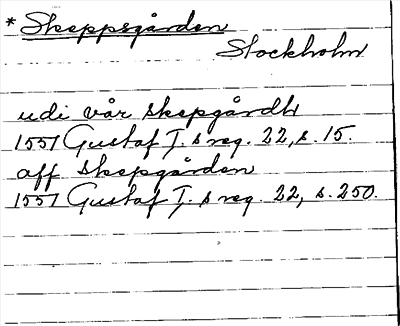 * Skeppsgården
Stockholm
udi vår skepgårdh
1551 Gustaf I.s reg. 22, s. 15.
aff skepgården
1551 Gustaf I.s reg. 22, s. 250.